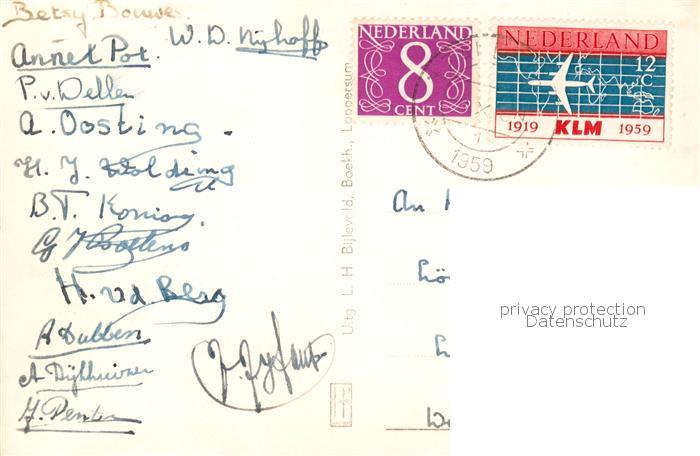 Betsy Bouwes
W. D. Nijhoff
Annet Pot.
P. v. Dellen
A. Oosting.
H. J. Wolding
B. T. Koning.
G J
H. vd Berg
A Dubben
A Dijkhuizen
J. Penter
Uitg. L. H. Bijleveld, Boekh., Loppersum
NEDERLAND
8
CENT
NEDERLAND
12
C
1919 KLM 1959
1959
An
privacy protection
Datenschutz